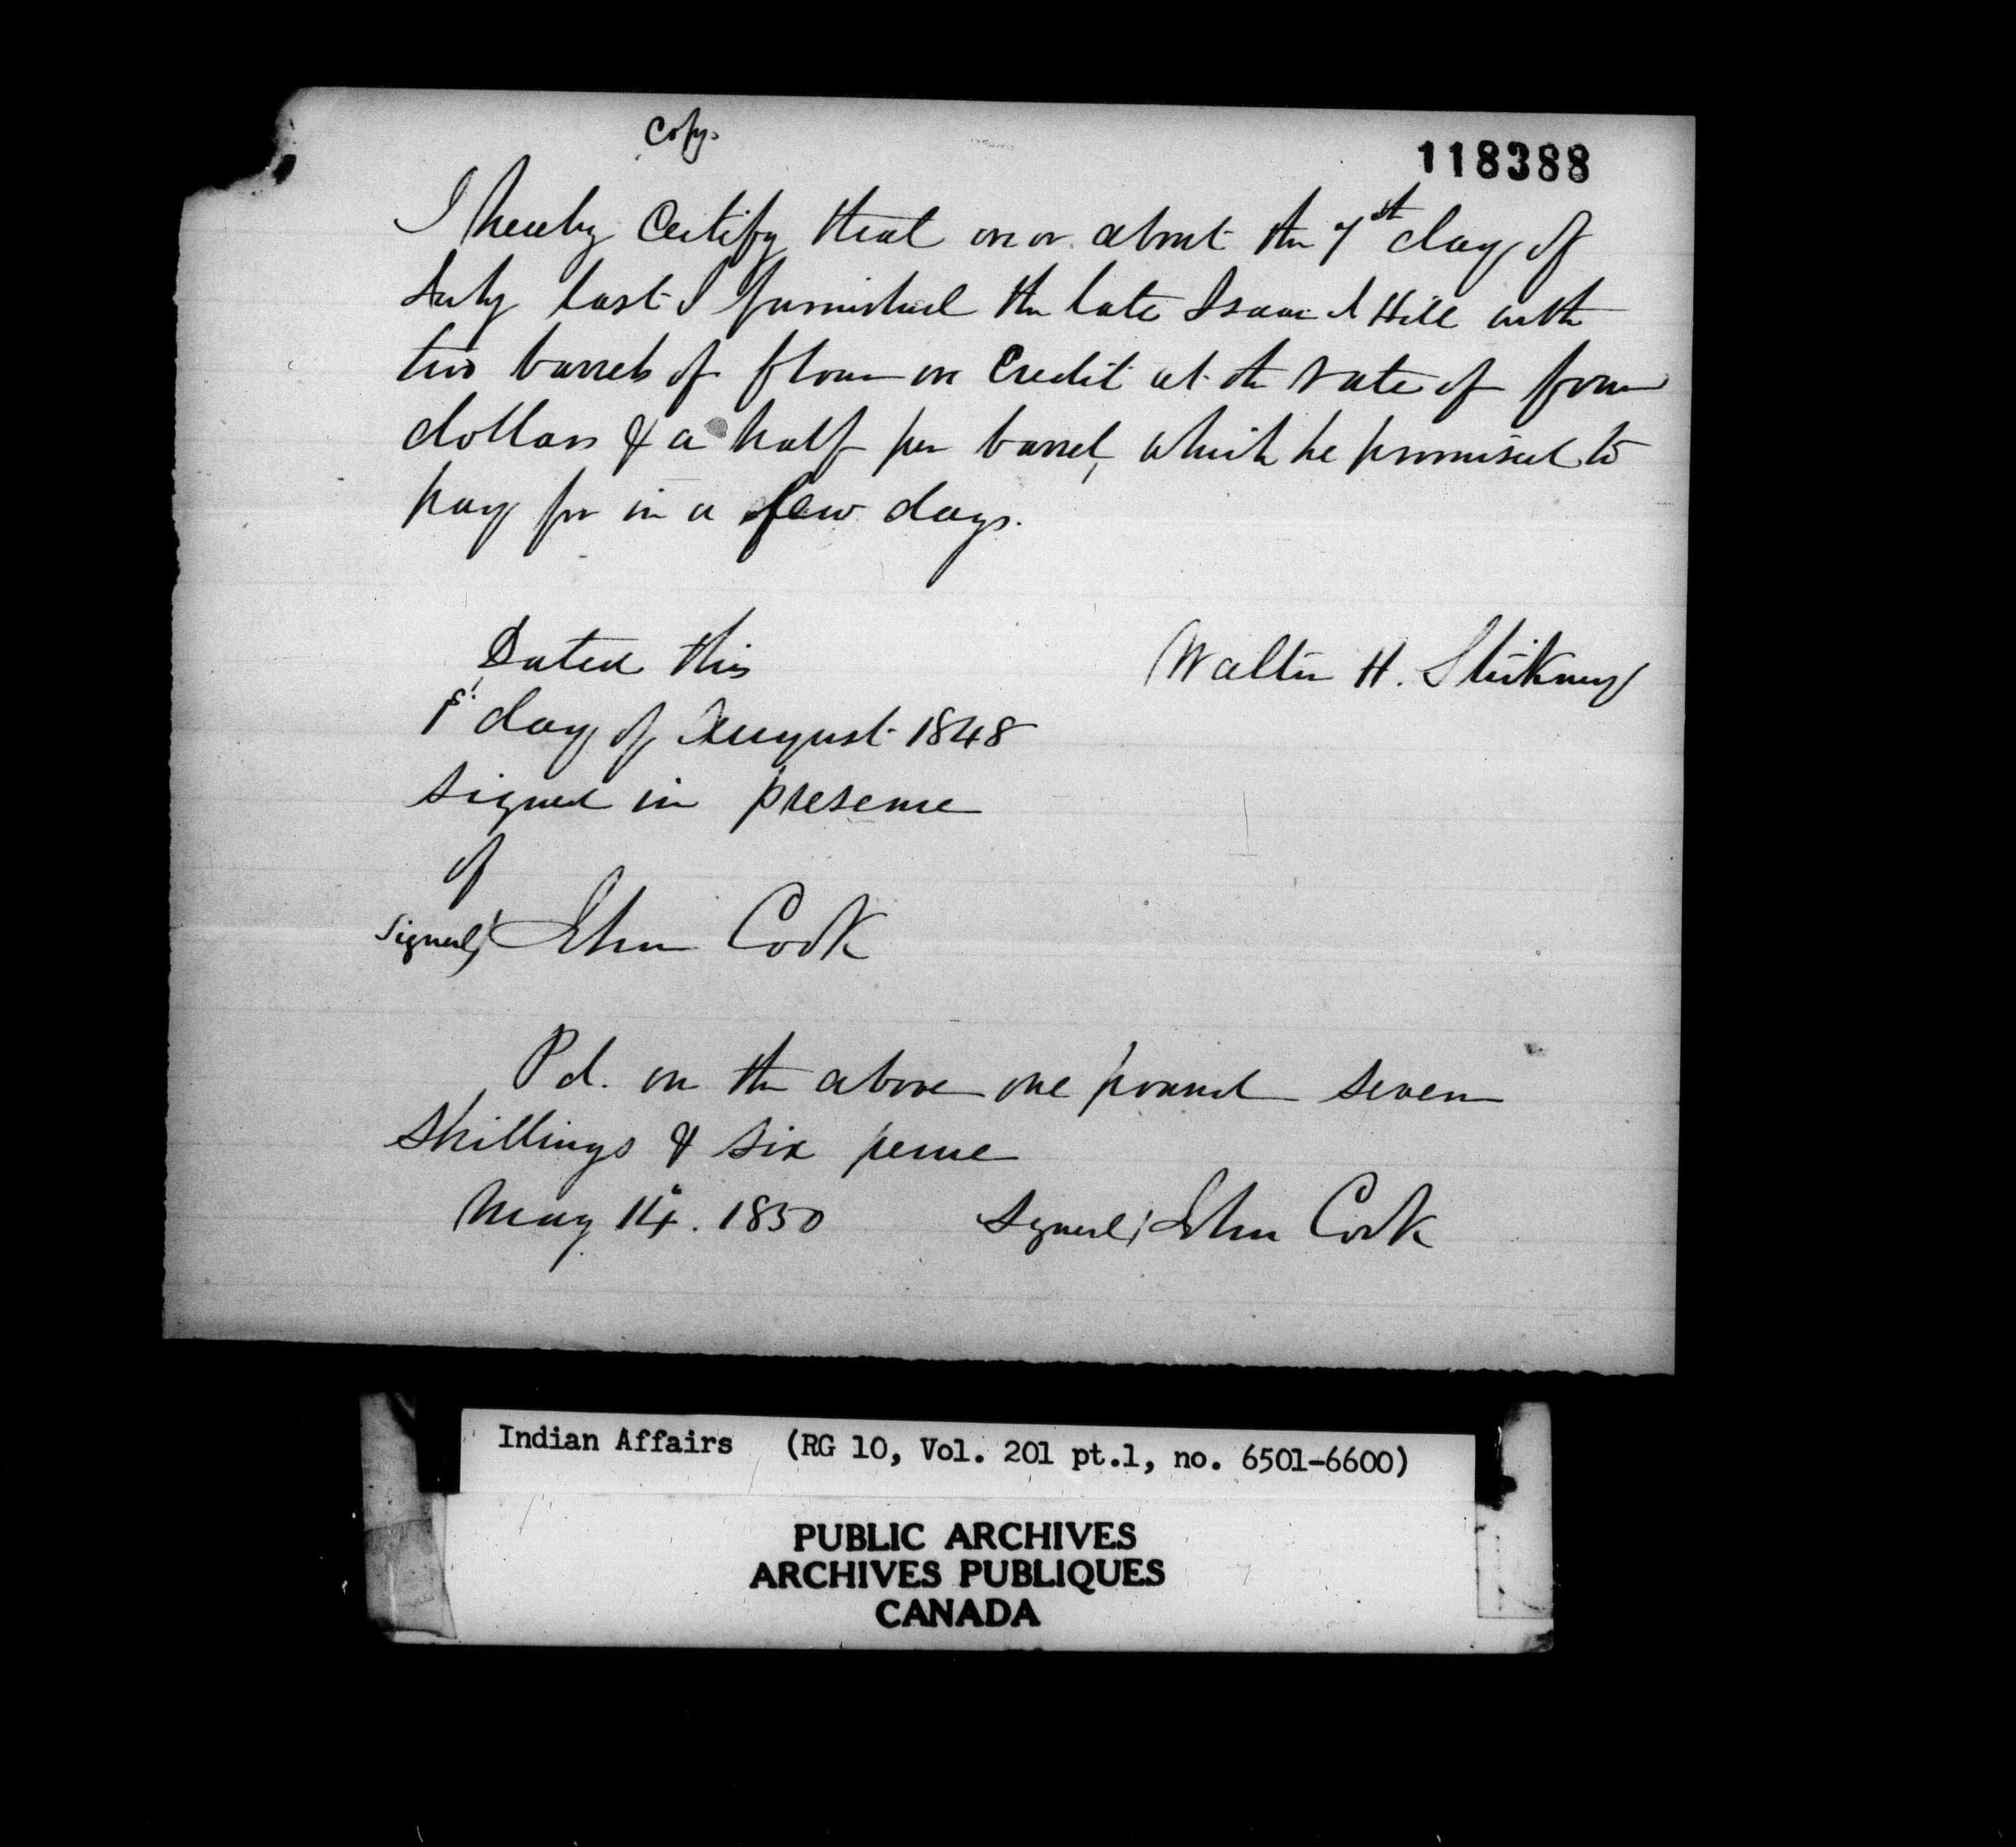 Copy.
118388
I hereby Certify that on or about the 7th day of
July last I furnished the late Isaac J Hill with
two barrels of flour on Credit at the rate of four
dollars & a half per barrel, which he promised to
pay for in a few days.
Dated this
Walter H. Stickney
1st day of August 1848
signed in presence
of
signed, John Cook
Pd. on the above one pound seven
shillings & six pence
May 14. 1850 signed, John Cook
Indian Affairs (RG 10, Vol. 201 pt.1, no. 6501-6600)
PUBLIC ARCHIVES
ARCHIVES PUBLIQUES
CANADA